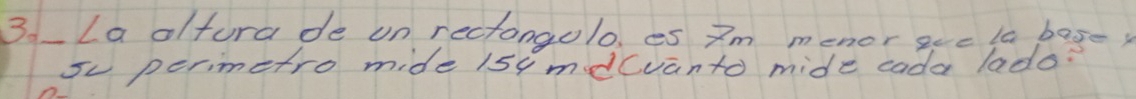 3._ La altura de un rectangulo. es 7m menor que la base y
su perimetro mide 154 m ¿Cuánto mide cada lado?